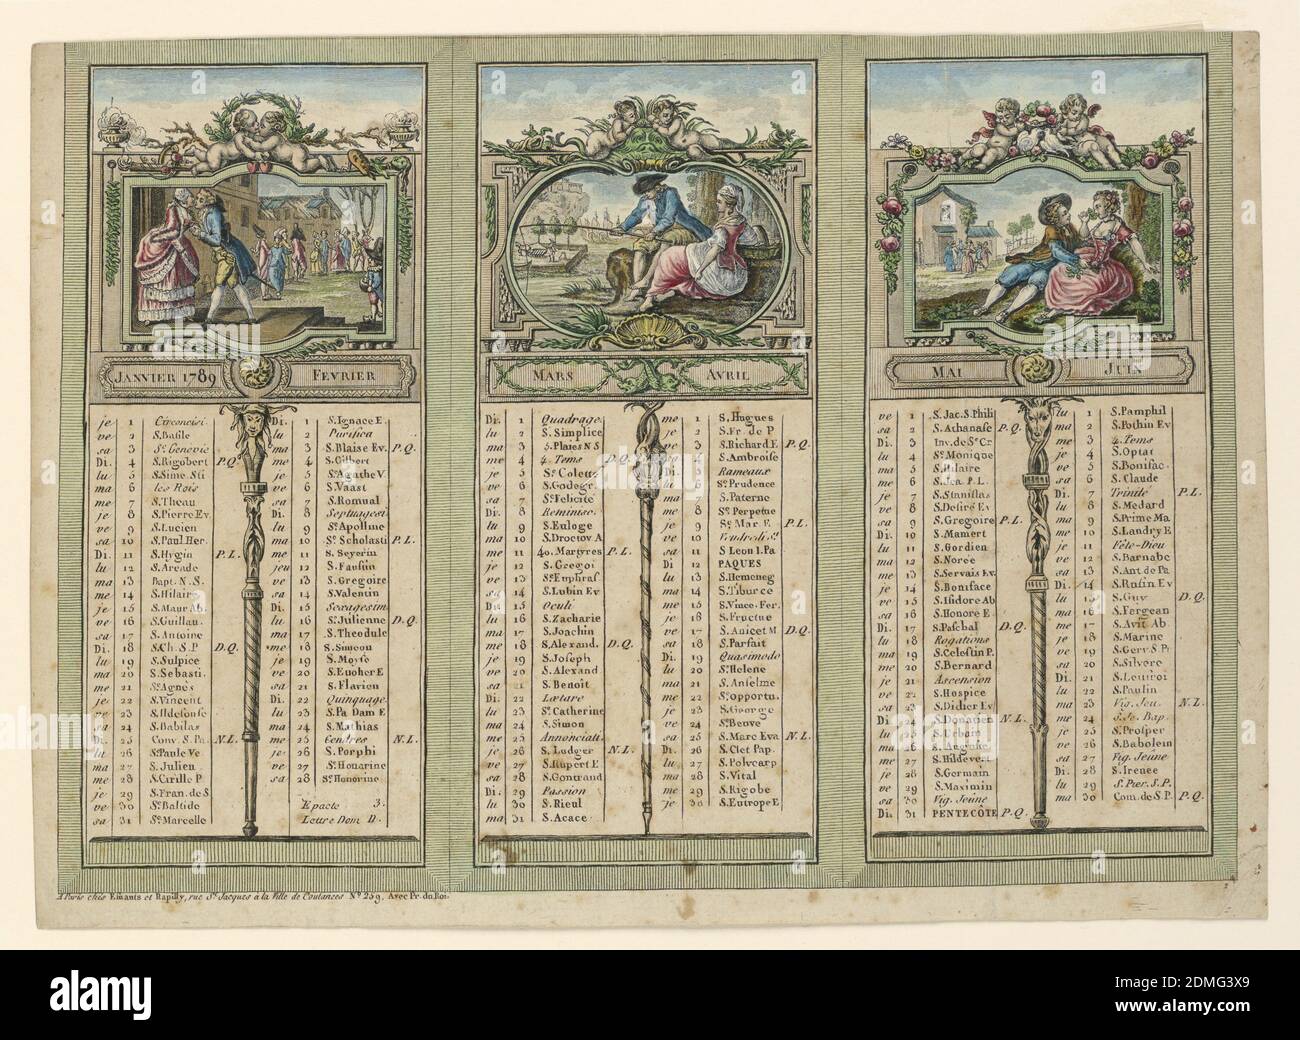 JANVIER 1789
FEVRIER
je 1 Circoncisi.
ve 2 S. Basile
sa 3 Ste Genevie
Di. 4 S. Rigobert P.Q.
lu 5 S. Sime. Sti
ma 6 les Rois
me 7 S. Theau
je 8 S. Pierre Ev.
ve 9 S. Lucien
sa 10 S. Paul Her.
Di. 11 S. Hygin P.L.
lu 12 S. Arcade
ma 13 Bapt. N.S.
me 14 S. Hilaire
je 15 S. Maur Ab.
ve 16 S. Guillau.
sa 17 S. Antoine
Di. 18 S. Ch. S. P D.Q.
lu 19 S. Sulpice
ma 20 S. Sebasti.
me 21 Ste Agnes
je 22 S. Vincent
ve 23 S. Ildefonse
sa 24 S. Babilas
Di. 25 Conv. S. Pa. N.L.
lu 26 Ste Paule Ve
ma 27 S. Julien
me 28 S. Cirille P
je 29 S. Fran. de S
ve 30 Ste Batilde
sa 31 Ste Marcelle
Di. 1 S. Ignace E.
lu 2 Purifica
ma 3 S. Blaise Ev. P.Q.
me 4 S. Gilbert
je 5 Ste Agathe V.
ve 6 S. Vaast
sa 7 S. Romual
Di. 8 Septuagesi
lu 9 Ste Apolline
ma 10 Ste Scholasti P.L.
me 11 S. Severin
jeu 12 S. Faustin
ve 13 S. Gregoire
sa 14 S. Valentin
Di. 15 Sexagesim
lu 16 Ste Julienne D.Q.
ma 17 S. Theodule
me 18 S. Simeon
je 19 S. Moyse
ve 20 S. Eucher E
sa 21 S. Flavien
Di. 22 Quinquage.
lu 23 S. Pa Dam E
ma 24 S. Mathias
me 25 Cendres N.L.
je 26 S. Porphi
ve 27 Ste Honorine
sa 28 Ste Honorine
Epacte 3.
Lettre Dom D.
MARS
AVRIL
Di. 1 Quadrage.
lu 2 S. Simplice
ma 3 5. Plaies N S
me 4 4. Tems P.Q.
je 5 Ste Colette
ve 6 S. Godegr.
sa 7 Ste Felicité
Di. 8 Reminisc.
lu 9 S. Euloge
ma 10 S. Droctov A
me 11 40. Martyres P.L.
je 12 S. Gregoi
ve 13 Ste Euphras
sa 14 S. Lubin Ev
Di. 15 Oculi
lu 16 S. Zacharie
ma 17 S. Joachin
me 18 S. Alexand. D.Q.
je 19 S. Joseph
ve 20 S. Alexand
sa 21 S. Benoit
Di. 22 Lætare
lu 23 Ste Catherine
ma 24 S. Simon
me 25 Annonciati.
je 26 S. Ludger N.L.
ve 27 S. Rupert E
sa 28 S. Gontrand
Di. 29 Passion
lu 30 S. Rieul
ma 31 S. Acace
me 1 S. Hugues
je 2 S. Fr. de P
ve 3 S. Richard E P.Q.
4 S. Ambroise
Di. 5 Rameaux
lu 6 Ste Prudence
ma 7 S. Paterne
me 8 Ste Perpetue
je 9 Ste Mar. E P.L.
ve 10 Vendredi St
sa 11 S Leon I. Pa
Di 12 PAQUES
lu 13 S. Hemeneg
ma 14 S. Tiburce
me 15 S. Vinc. Fer.
je 16 S. Fructue
ve 17 S. Anicet M D.Q.
sa 18 S. Parfait
Di. 19 Quasimodo
lu 20 Ste Helene
ma 21 S. Anselme
me 22 Ste opportu.
je 23 S. George
ve 24 Ste Beuve
sa 25 S. Marc Eva N.L.
Di. 26 S. Clet Pap.
lu 27 S. Polycarp
ma 28 S. Vital
me 29 S. Rigobe
je 30 S. Eutrope E
MAI
JUIN
ve 1 S. Jac. S. Phili
sa 2 S. Athanase P.Q.
Di. 3 Inv. de Ste Cr
lu 4 Ste Monique
ma 5 S. Hilaire
me 6 S. Jea. P.L.
je 7 S. Stanislas
ve 8 S. Desiré Ev
sa 9 S. Gregoire P.L.
Di. 10 S. Mamert
lu 11 S. Gordien
ma 12 S. Norée
me 13 S. Servais Ev.
je 14 S. Boniface
ve 15 S. Isidore Ab
sa 16 S. Honore E.
Di. 17 S. Paschal D.Q.
lu 18 Rogations
ma 19 S. Celestin P.
me 20 S. Bernard
je 21 Ascension
ve 22 S. Hospice
sa 23 S. Didier Ev
Di. 24 S. Donatien N.L.
lu 25 S. Urbain
ma 26 S. Auguste
me 27 S. Hildevert
je 28 S. Germain
ve 29 S. Maximin
sa 30 Vig. Jeûne
Di. 31 PENTECÔTE P.Q.
lu 1 S. Pamphil
ma 2 S. Pothin Ev
me 3 4. Tems
je 4 S. Optat
ve 5 S. Bonifac.
sa 6 S. Claude
Di. 7 Trinité P.L.
lu 8 S. Medard
ma 9 S. Prime Ma
me 10 S. Landry E
je 11 Fête-Dieu
ve 12 S. Barnabe
sa 13 S. Ant. de Pa
Di. 14 S. Rufin Ev
lu 15 S. Guy D.Q.
ma 16 S. Fergean
me 17 S. Avit Ab.
je 18 S. Marine
ve 19 S. Gerv. S. Pr
sa 20 S. Silvere
Di. 21 S. Leufroi
lu 22 S. Paulin
ma 23 Vig. Jeu. N.L.
me 24 S. Je. Bap.
je 25 S. Prosper
ve 26 S. Babolein
sa 27 Vig. Jeûne
Di. 28 S. Irenée
lu 29 S. Pier. S. P.
ma 30 Com. de S. P. P.Q.
A Paris chés Esnauts et Rapilly, rue St. Jacques à la Ville de Coutances No. 259, Avec Pr. du Roi.
alamy
Image ID: 2DMG3X9
www.alamy.com